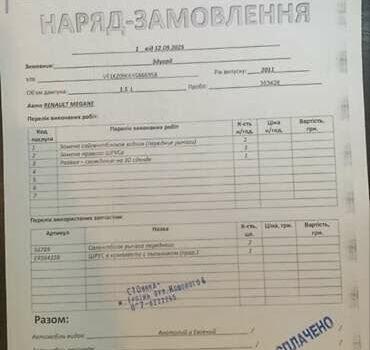 НАРЯД-ЗАМОВЛЕННЯ
1 від 12.09.2025
Замовник: Эдуард
VIN Рік випуску: 2011
Об'єм двигуна: 1.5 L Пробіг: 303628
Авто RENAULT MEGANE
Перелік виконаних робіт:
Код послуги Перелік виконаних робіт К-сть н/год. Ціна н/год. Вартість, грн.
1 Замена сайлентблоков задних (передние рычаги) 2
2 Замена правого ШРУСа 1
3 Развал – схождение на 3D стенде 1
4
5
6
7
Перелік використаних запчастин:
Артикул Назва К-сть, шт. Ціна, грн. Вартість, грн.
34789 Сайлентблок рычага переднего 2
ER564328 ШРУС в комплекте с пыльником (прав.) 1
Разом:
СТОянка-
Автомобіль видав: Анатолий и Евгений
ОПЛАЧЕНО